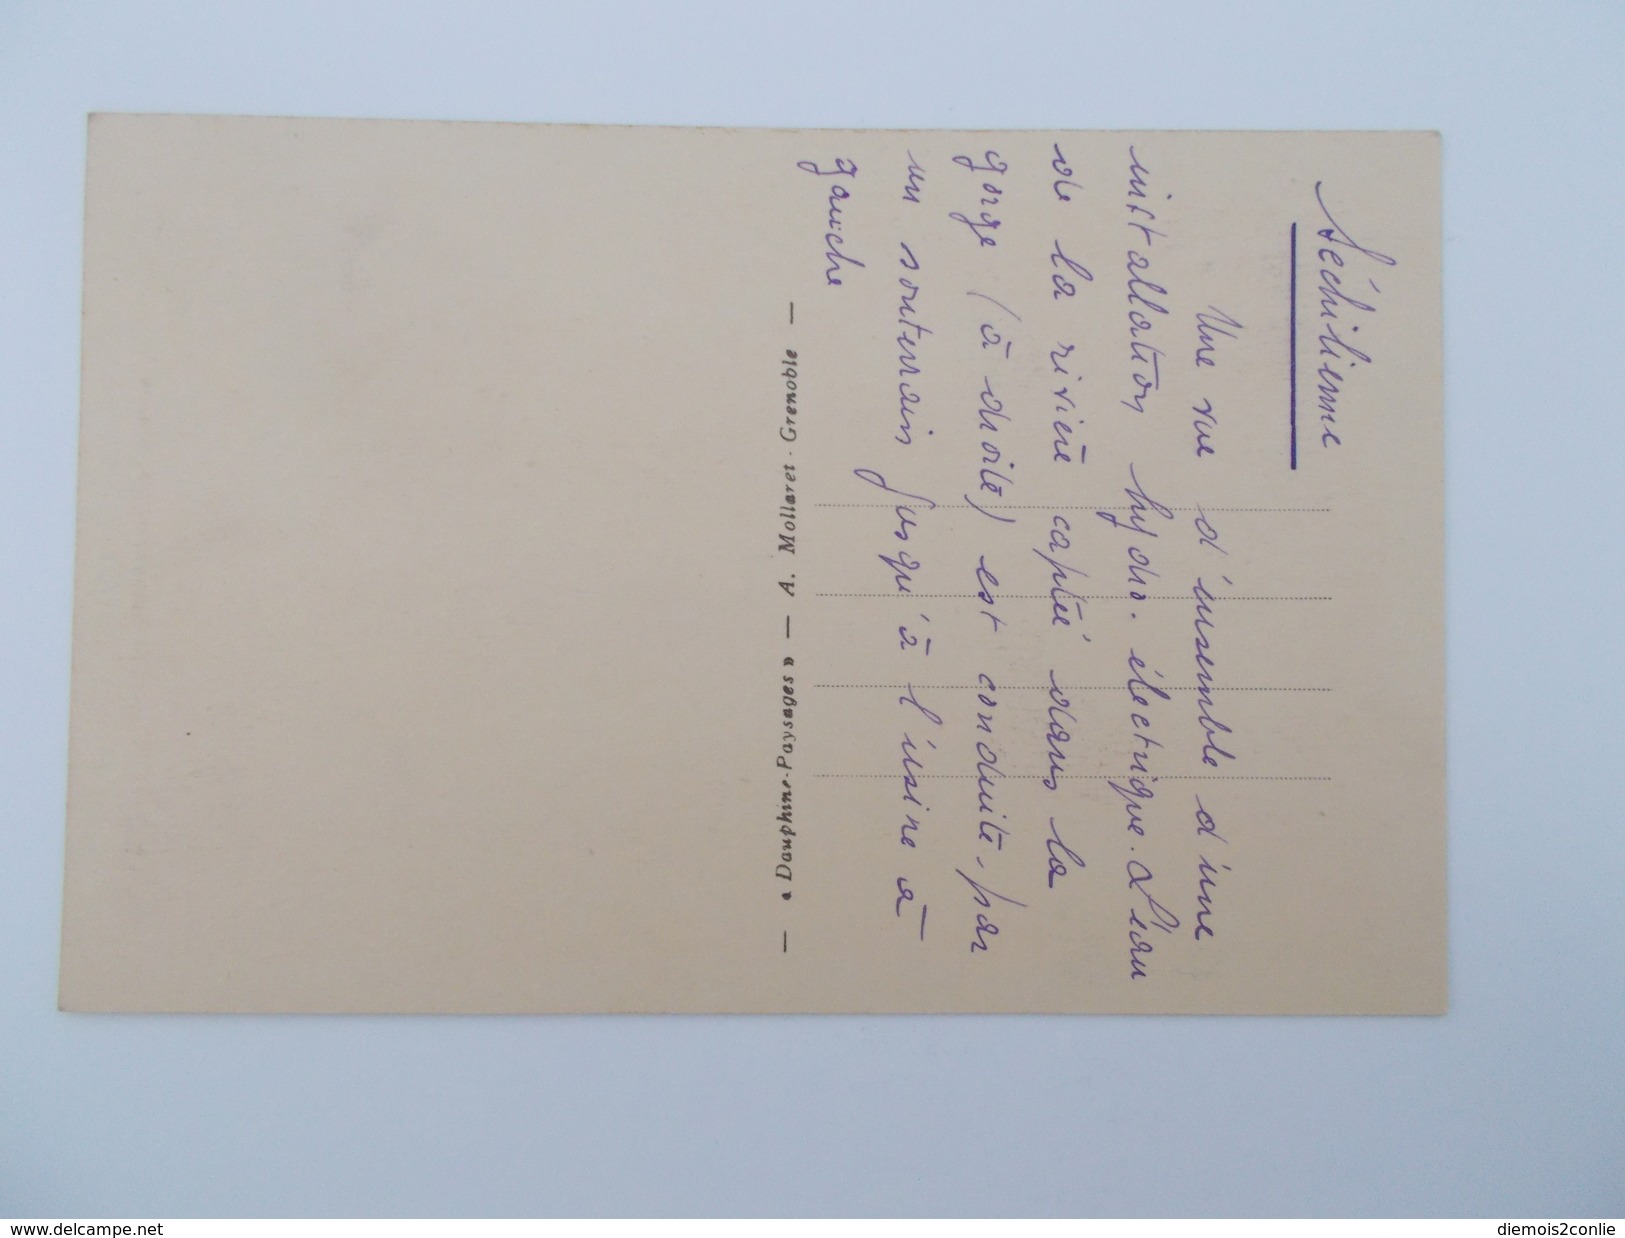 Séchilienne
Une vue d'ensemble d'une
installation hydro.électrique. L'eau
de la rivière captée dans la
gorge (à droite) est conduite par
un souterrain jusqu'à l'usine à
gauche
— « Dauphiné-Paysages » — A. Mollaret - Grenoble —
www.delcampe.net
diemois2conlie